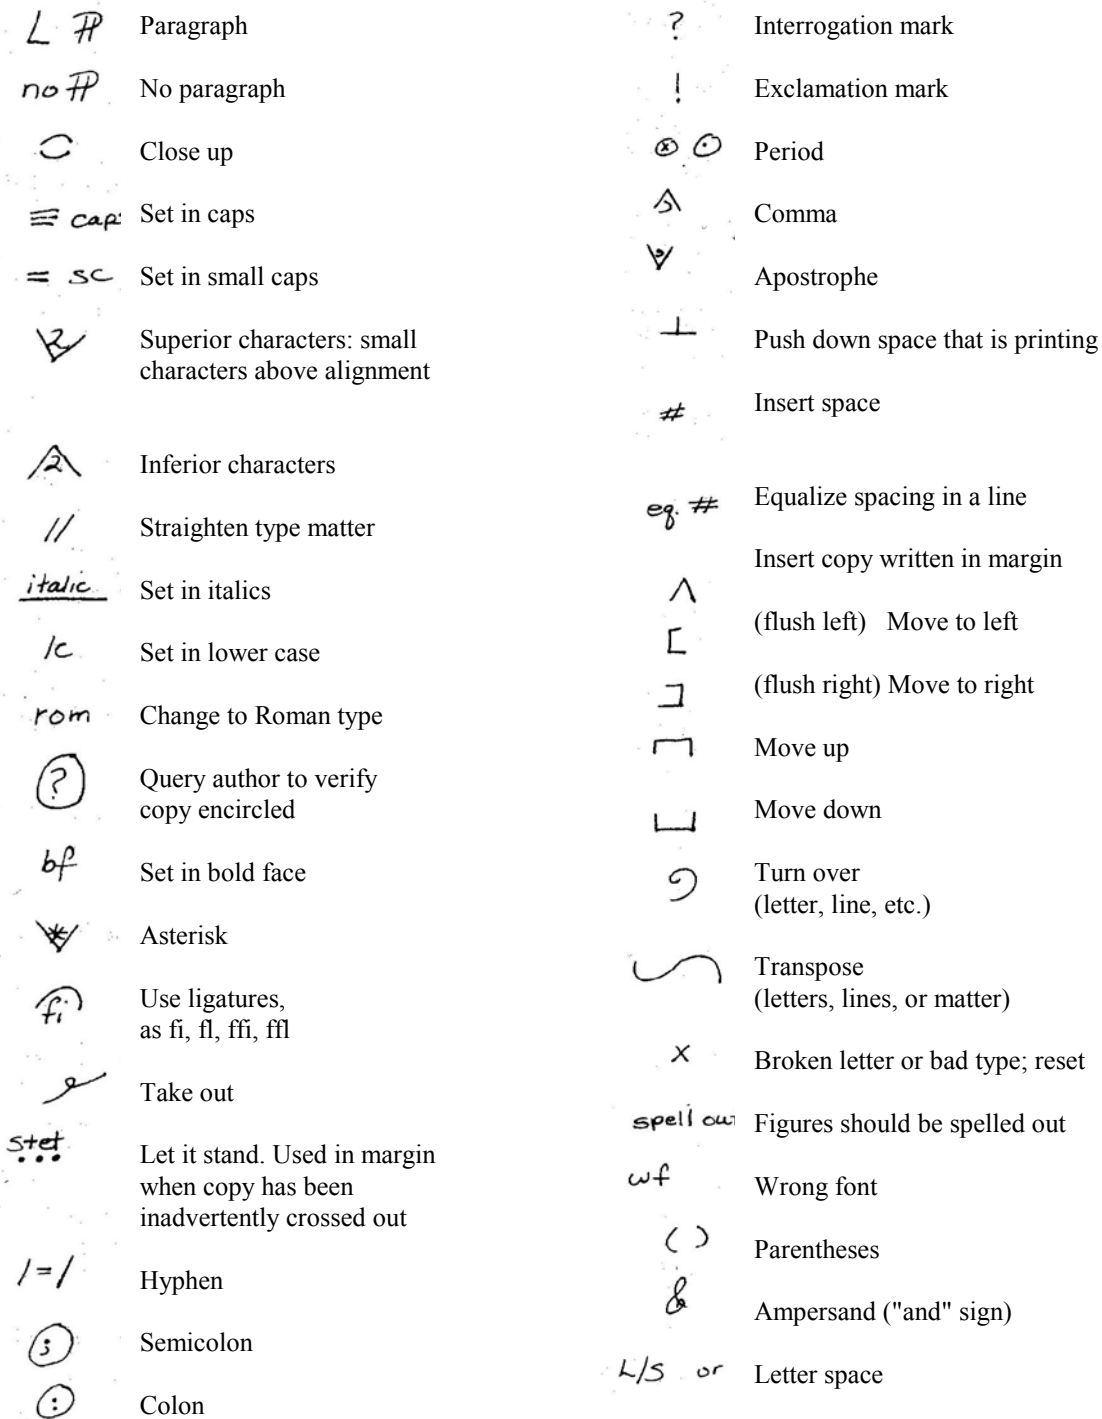 L ¶ Paragraph
no ¶ No paragraph
Close up
≡ cap Set in caps
= sc Set in small caps
2 Superior characters: small
characters above alignment
2 Inferior characters
// Straighten type matter
italic Set in italics
lc Set in lower case
rom Change to Roman type
? Query author to verify
copy encircled
bf Set in bold face
* Asterisk
fi Use ligatures,
as fi, fl, ffi, ffl
Take out
stet Let it stand. Used in margin
when copy has been
inadvertently crossed out
/=/ Hyphen
; Semicolon
: Colon
? Interrogation mark
! Exclamation mark
ⓧ ⊙ Period
, Comma
Apostrophe
⊥ Push down space that is printing
# Insert space
eq. # Equalize spacing in a line
Insert copy written in margin
∧
[ (flush left) Move to left
] (flush right) Move to right
Move up
Move down
Turn over
(letter, line, etc.)
Transpose
(letters, lines, or matter)
x Broken letter or bad type; reset
spell out Figures should be spelled out
wf Wrong font
( ) Parentheses
& Ampersand ("and" sign)
L/S or Letter space